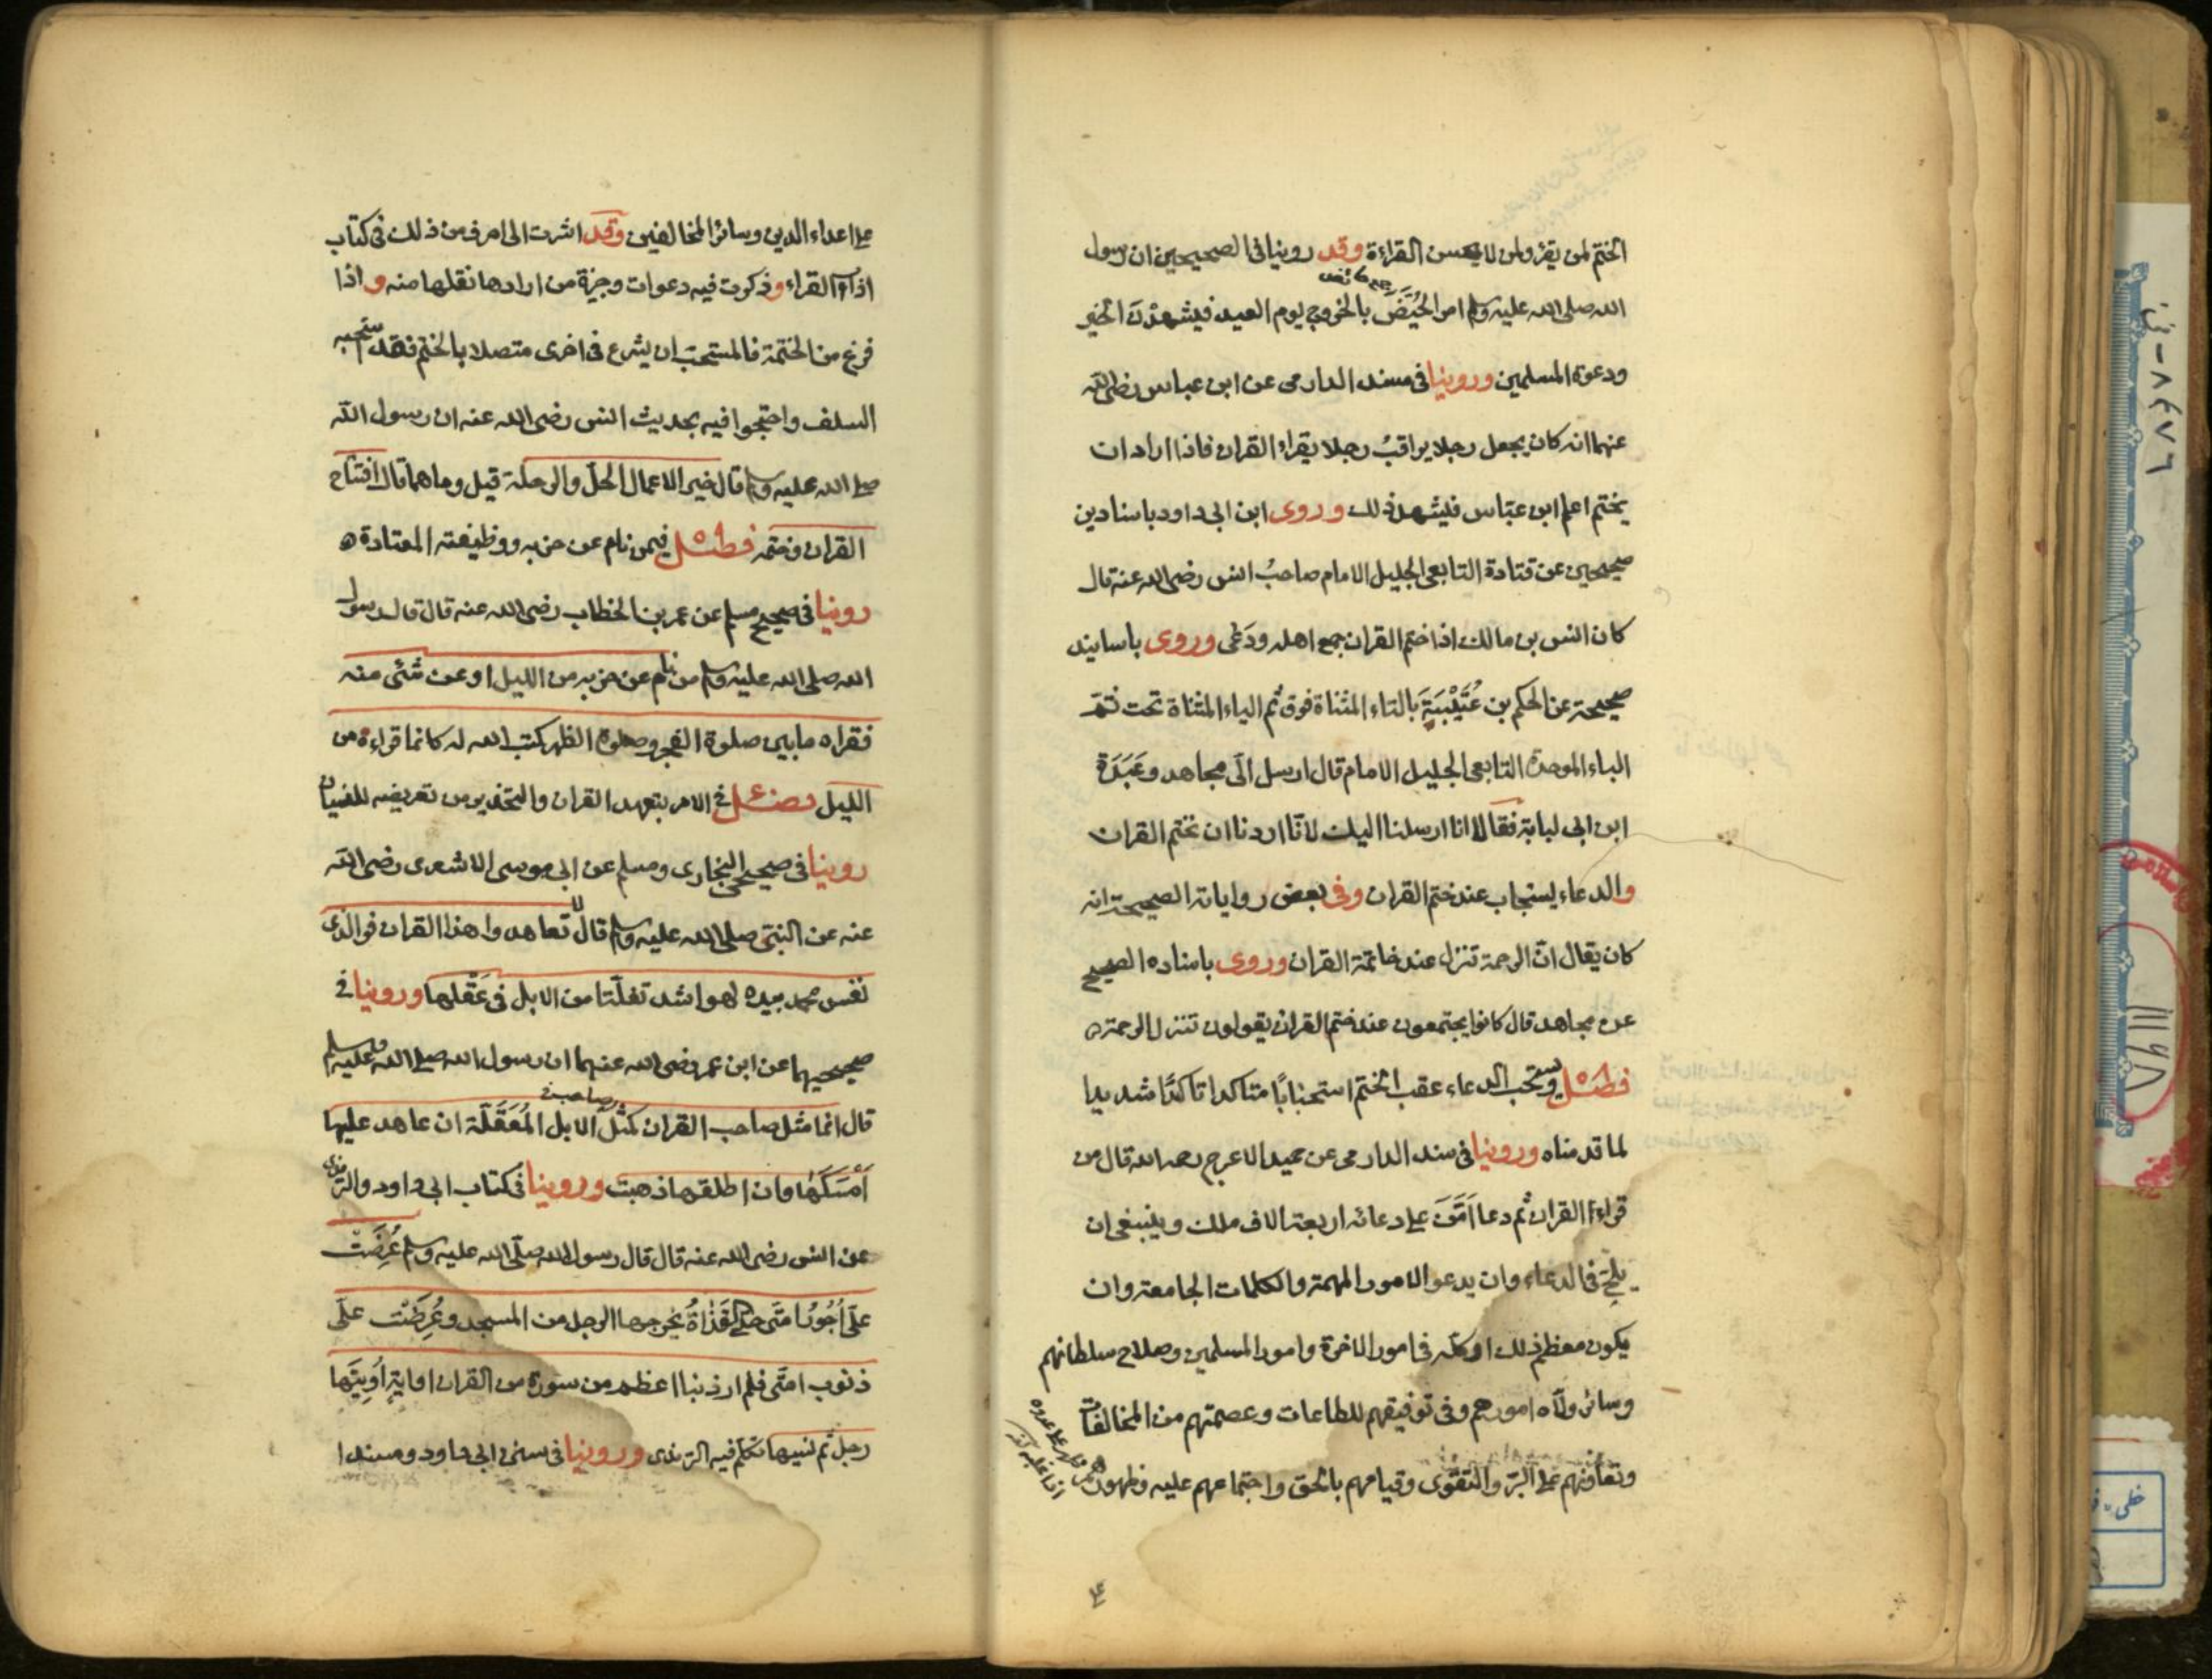 الختم لمن يقرؤ ولمن لا يحسن القراءة وقد روينا فى الصحيحين ان رسول
الله صلى الله عليه وسلم امر الحُيَّضَ بالخروج يوم العيد فيشهدْنَ الخير
ودعوة المسلمين وروينا فى مسند الدارمى عن ابن عباس رضى الله
عنهما انه كان يجعل رجلا يراقبُ رجلا يقراء القران فاذا اراد ان
يختم اعلم ابن عبّاس فيشهد ذلك وروى ابن ابى داود باسنادين
صحيحين عن قتادة التابعى الجليل الامام صاحبُ انس رضى الله عنه قال
كان انس بن مالك اذا ختم القران جمع اهله ودَعى وروى باسانيد
صحيحة عن الحكم بن عُتَيْبَةَ بالتاء المثناة فوق ثم الياء المثناة تحت ثم
الباء الموحدة التابعى الجليل الامام قال ارسل الَى مجاهد وعَبَدَة
ابن ابى لبابة فقالا انا ارسلنا اليك لانّا اردنا ان نختم القران
والدعاء يستجاب عند ختم القران وفى بعض رواياته الصحيحة انه
كان يقال انّ الرحمة تنزل عند خاتمة القران وروى باسناده الصحيح
عن مجاهد قال كانوا يجتمعون عند ختم القران يقولون تنزل الرحمة ه
فصل ويستحب الدعاء عقب الختم استحبابًا متاكدا تاكدًا شديدا
لما قدمناه وروينا فى سند الدارمى عن حميد الاعرج رحمه الله قال من
قراءا القران ثم دعا اَمَّنَ على دعائه اربعة الاف ملك وينبغى ان
يلحّ فى الدعاء وان يدعو الامور المهمة والكلمات الجامعة وان
يكون معظم ذلك او كله فى امور الاخرة وامور المسلمين وصلاح سلطانهم
وسائر ولاه امورهم وفى توفيقهم للطاعات وعصمتهم من المخالفات
وتعاونهم على البرّ والتقوى وقيامهم بالحق واجتماعهم عليه وظهورهم
على
على اعداء الدين وسائر المخالفين وقد اشرت الى احرف من ذلك فى كتاب
اداب القراء وذكرت فيه دعوات وجيزة من ارادها نقلها منه واذا
فرغ من الختمة فالمستحبّ ان يشرع فى اخرى متصلا بالختم فقد استحبه
السلف واحتجوا فيه بحديث انس رضى الله عنه ان رسول الله
صلى الله عليه وسلم قال خير الاعمال الحلّ والرحلة قيل وما هما قال افتتاح
القران وختمه فصل فيمن نام عن حزبه ووظيفته المعتادة ه
روينا فى صحيح مسلم عن عمر بن الخطاب رضى الله عنه قال قال رسول
الله صلى الله عليه وسلم من نام عن حزبه من الليل او عن شئى منه
فقراه ما بين صلوة الفجر وصلوة الظهر كتب الله له كانما قراءه من
الليل فصل فى الامر بتعهد القران والتحذير من تعريضه للنسيان
روينا فى صحيحى البخارى ومسلم عن ابى موسى الاشعرى رضى الله
عنه عن النبىّ صلى الله عليه وسلم قال تعاهدوا هذا القران فوالذى
نفس محمد بيده لهو اشد تفلّتا من الابل فى عَقْلها وروينا فى
صحيحيهما عن ابن عمر رضى الله عنهما ان رسول الله صلى الله عليه وسلم
صاحب
قال انما مثل صاحب القران كمثل الابل المُعَقَّلَة ان عاهد عليها
اَمْسَكَهَا وان اطلقها ذهبت وروينا فى كتاب ابى داود والترمذى
عن انس رضى الله عنه قال قال رسول الله صلّى الله عليه وسلم عُرِضَت
علَىّ اُجُورُ امّتى حتى القَذَاةُ يخرجها الرجل من المسجد وعُرِضَتْ علىّ
ذنوب امتى فلم ار ذنبا اعظم من سورة من القران او اية اُوتِيَها
رجل ثم نسيها تكلم فيه الترمذى وروينا فى سنن ابى داود ومسند ا
٨٤٧٦ - ف
١١١٩٨
خطى - ف